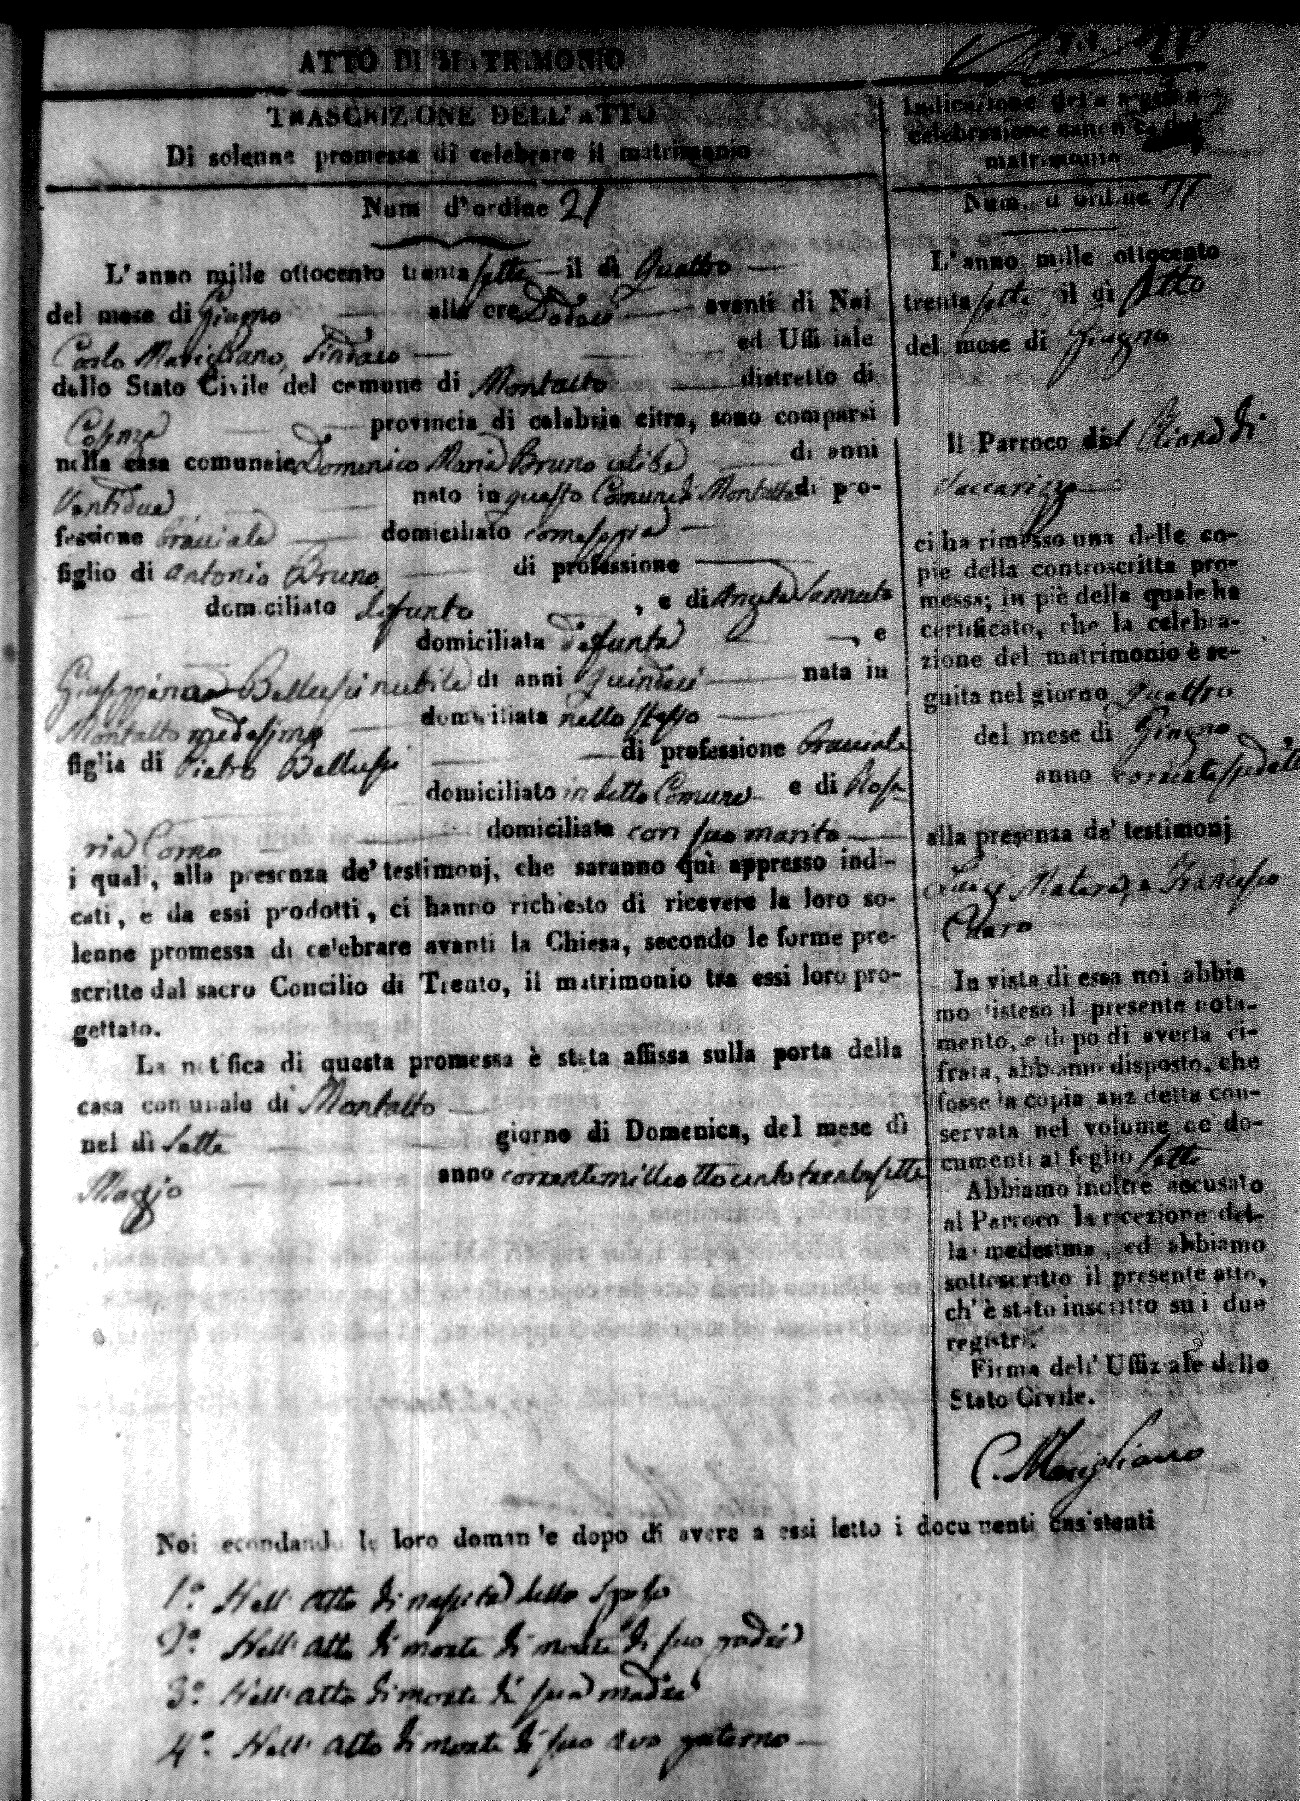 ATTO DI MATRIMONIO
TRASCRIZIONE DELL'ATTO
Di solenne promessa di celebrare il matrimonio
Num d'ordine 21
L'anno mille ottocento trenta sette il dì Quattro
del mese di Giugno alle ore Dodeci avanti di Noi
Carlo Marigliano, Sindaco ed Uffiziale
dello Stato Civile del comune di Montalto distretto di
Cosenza provincia di calabria citra, sono comparsi
nella casa comunale Domenico Maria Bruno celibe di anni
Ventidue nato in questo Comune di Montalto di pro-
fessione Bracciale domiciliato come sopra
figlio di Antonio Bruno di professione
domiciliato defunto, e di Angela
domiciliata defunta, e
Giuseppina Bellusci nubile di anni Quindeci nata in
Montalto medesimo domiciliata nello stesso
figlia di Pietro Bellusci di professione Bracciale
domiciliato in detto Comune e di Rosa-
ria Corno domiciliata con suo marito
i quali, alla presenza de' testimonj, che saranno quì appresso indi-
cati, e da essi prodotti, ci hanno richiesto di ricevere la loro so-
lenne promessa di celebrare avanti la Chiesa, secondo le forme pre-
scritte dal sacro Concilio di Trento, il matrimonio tra essi loro pro-
gettato.
La notifica di questa promessa è stata affissa sulla porta della
casa comunale di Montalto
nel dì Sette giorno di Domenica, del mese dì
Maggio anno corrente mille otto cento trenta sette
Indicazione della seguita
celebrazione canonica del
matrimonio
Num. d'ordine 21
L'anno mille ottocento
trenta sette il dì Otto
del mese di Giugno
Il Parroco del di
Vaccarizzo
ci ha rimesso una delle co-
pie della controscritta pro-
messa; in piè della quale ha
certificato, che la celebra-
zione del matrimonio è se-
guita nel giorno Quattro
del mese di Giugno
anno corrente
alla presenza de' testimonj
Luigi e Francesco
In vista di essa noi abbia
mo disteso il presente nota-
mento, e dopo di averla ci-
frata, abbiamo disposto, che
fosse la copia anzidetta con-
servata nel volume de' do-
cumenti al foglio sette
Abbiamo inoltre accusato
al Parroco la ricezione del-
la medesima, ed abbiamo
sottoscritto il presente atto,
ch'è stato inscritto su i due
registri.
Firma dell'Uffiziale dello
Stato Civile.
C. Marigliano
Noi secondando le loro domande dopo di avere a essi letto i documenti consistenti
1.º Nell'atto di nascita dello Sposo
2.º Nell'atto di morte di morte di suo padre
3.º Nell'atto di morte di sua madre
4.º Nell'atto di morte di suo avo paterno